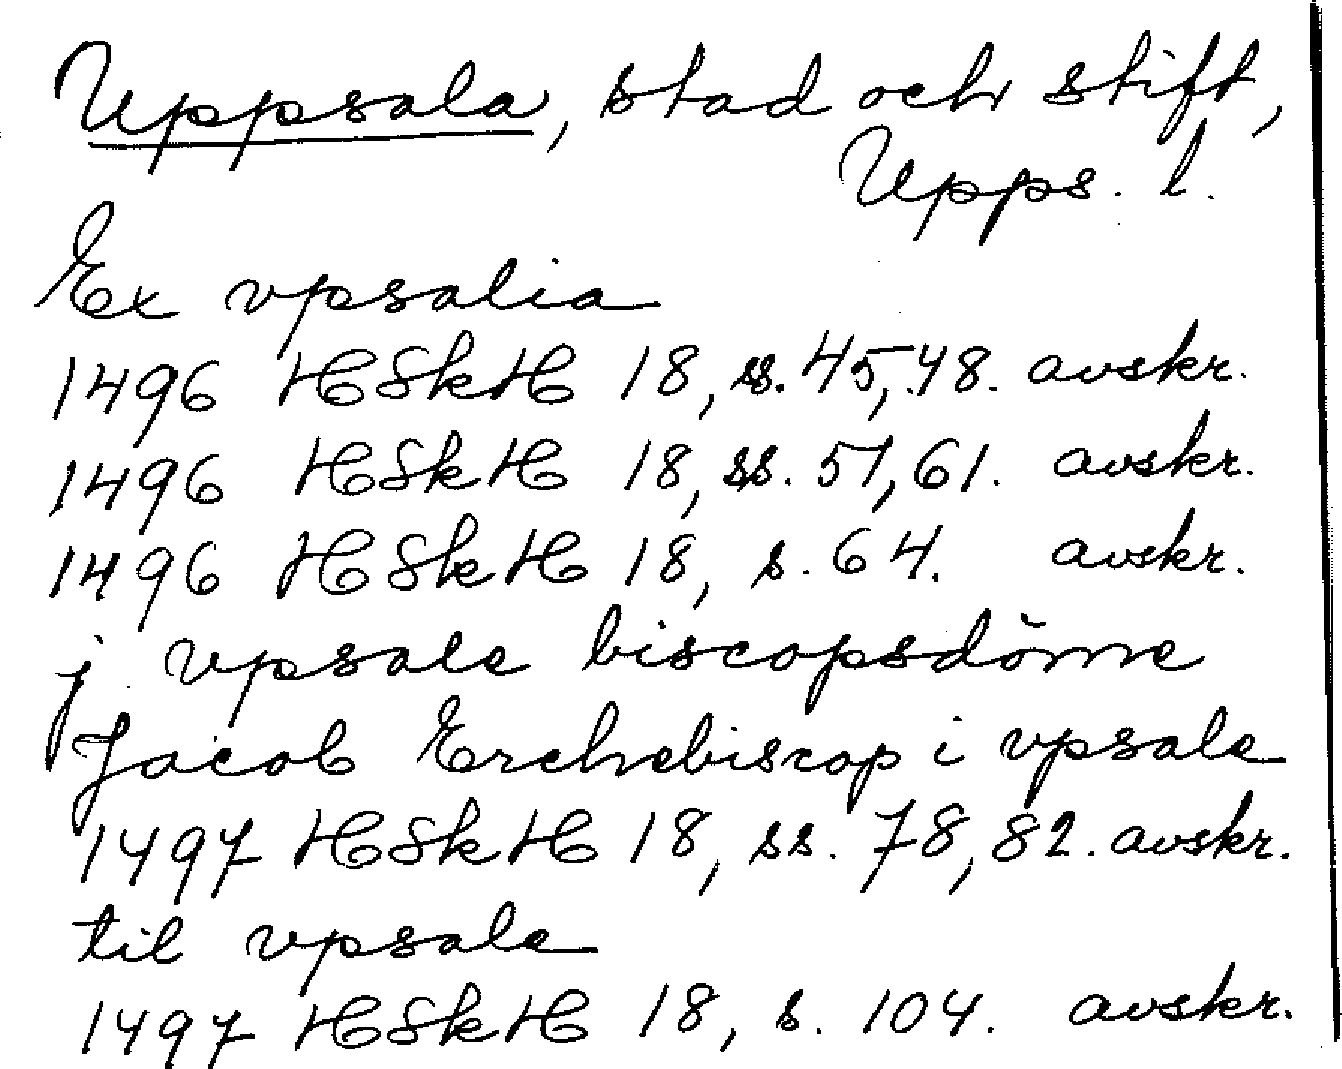 Uppsala, stad och stift,
Upps. l.
Ex vpsalia
1496 HSkH 18, ss. 45, 48. avskr.
1496 HSkH 18, ss. 57, 61. avskr.
1496 HSkH 18, s. 64. avskr.
j vpsale biscopsdöme
Jacob Erchebiscop i vpsale
1497 HSkH 18, ss. 78, 82. avskr.
til vpsale
1497 HSkH 18, s. 104. avskr.